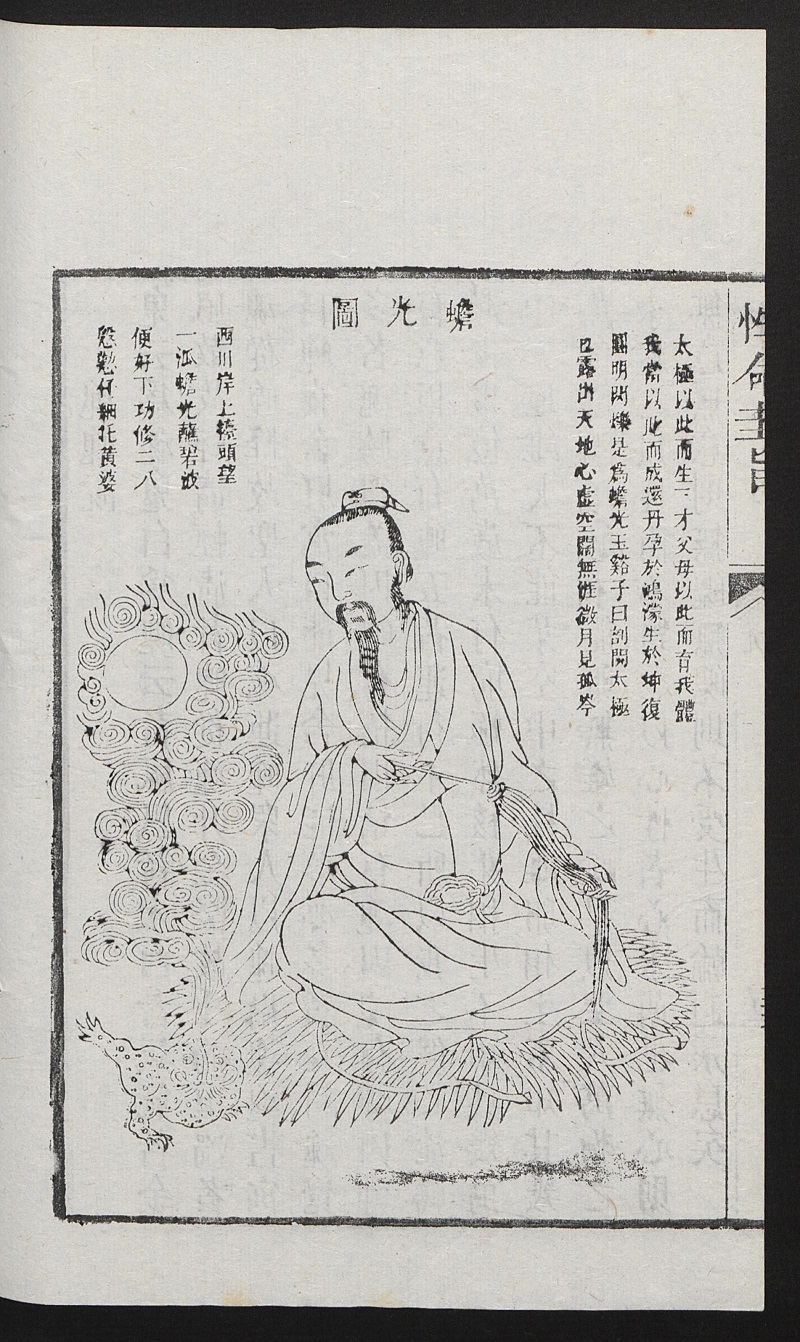 性命圭旨
蟾光圖
太極以此而生三才父母以此而育我體
我當以此而成還丹孕於鴻濛生於坤復
開明閃爍是爲蟾光玉谿子曰剖開太極
口露出天地心虛空闊無涯微月見孤岑
西川岸上擡頭望
一派蟾光蘸碧波
便好下功修二八
慇懃仔細托黃婆